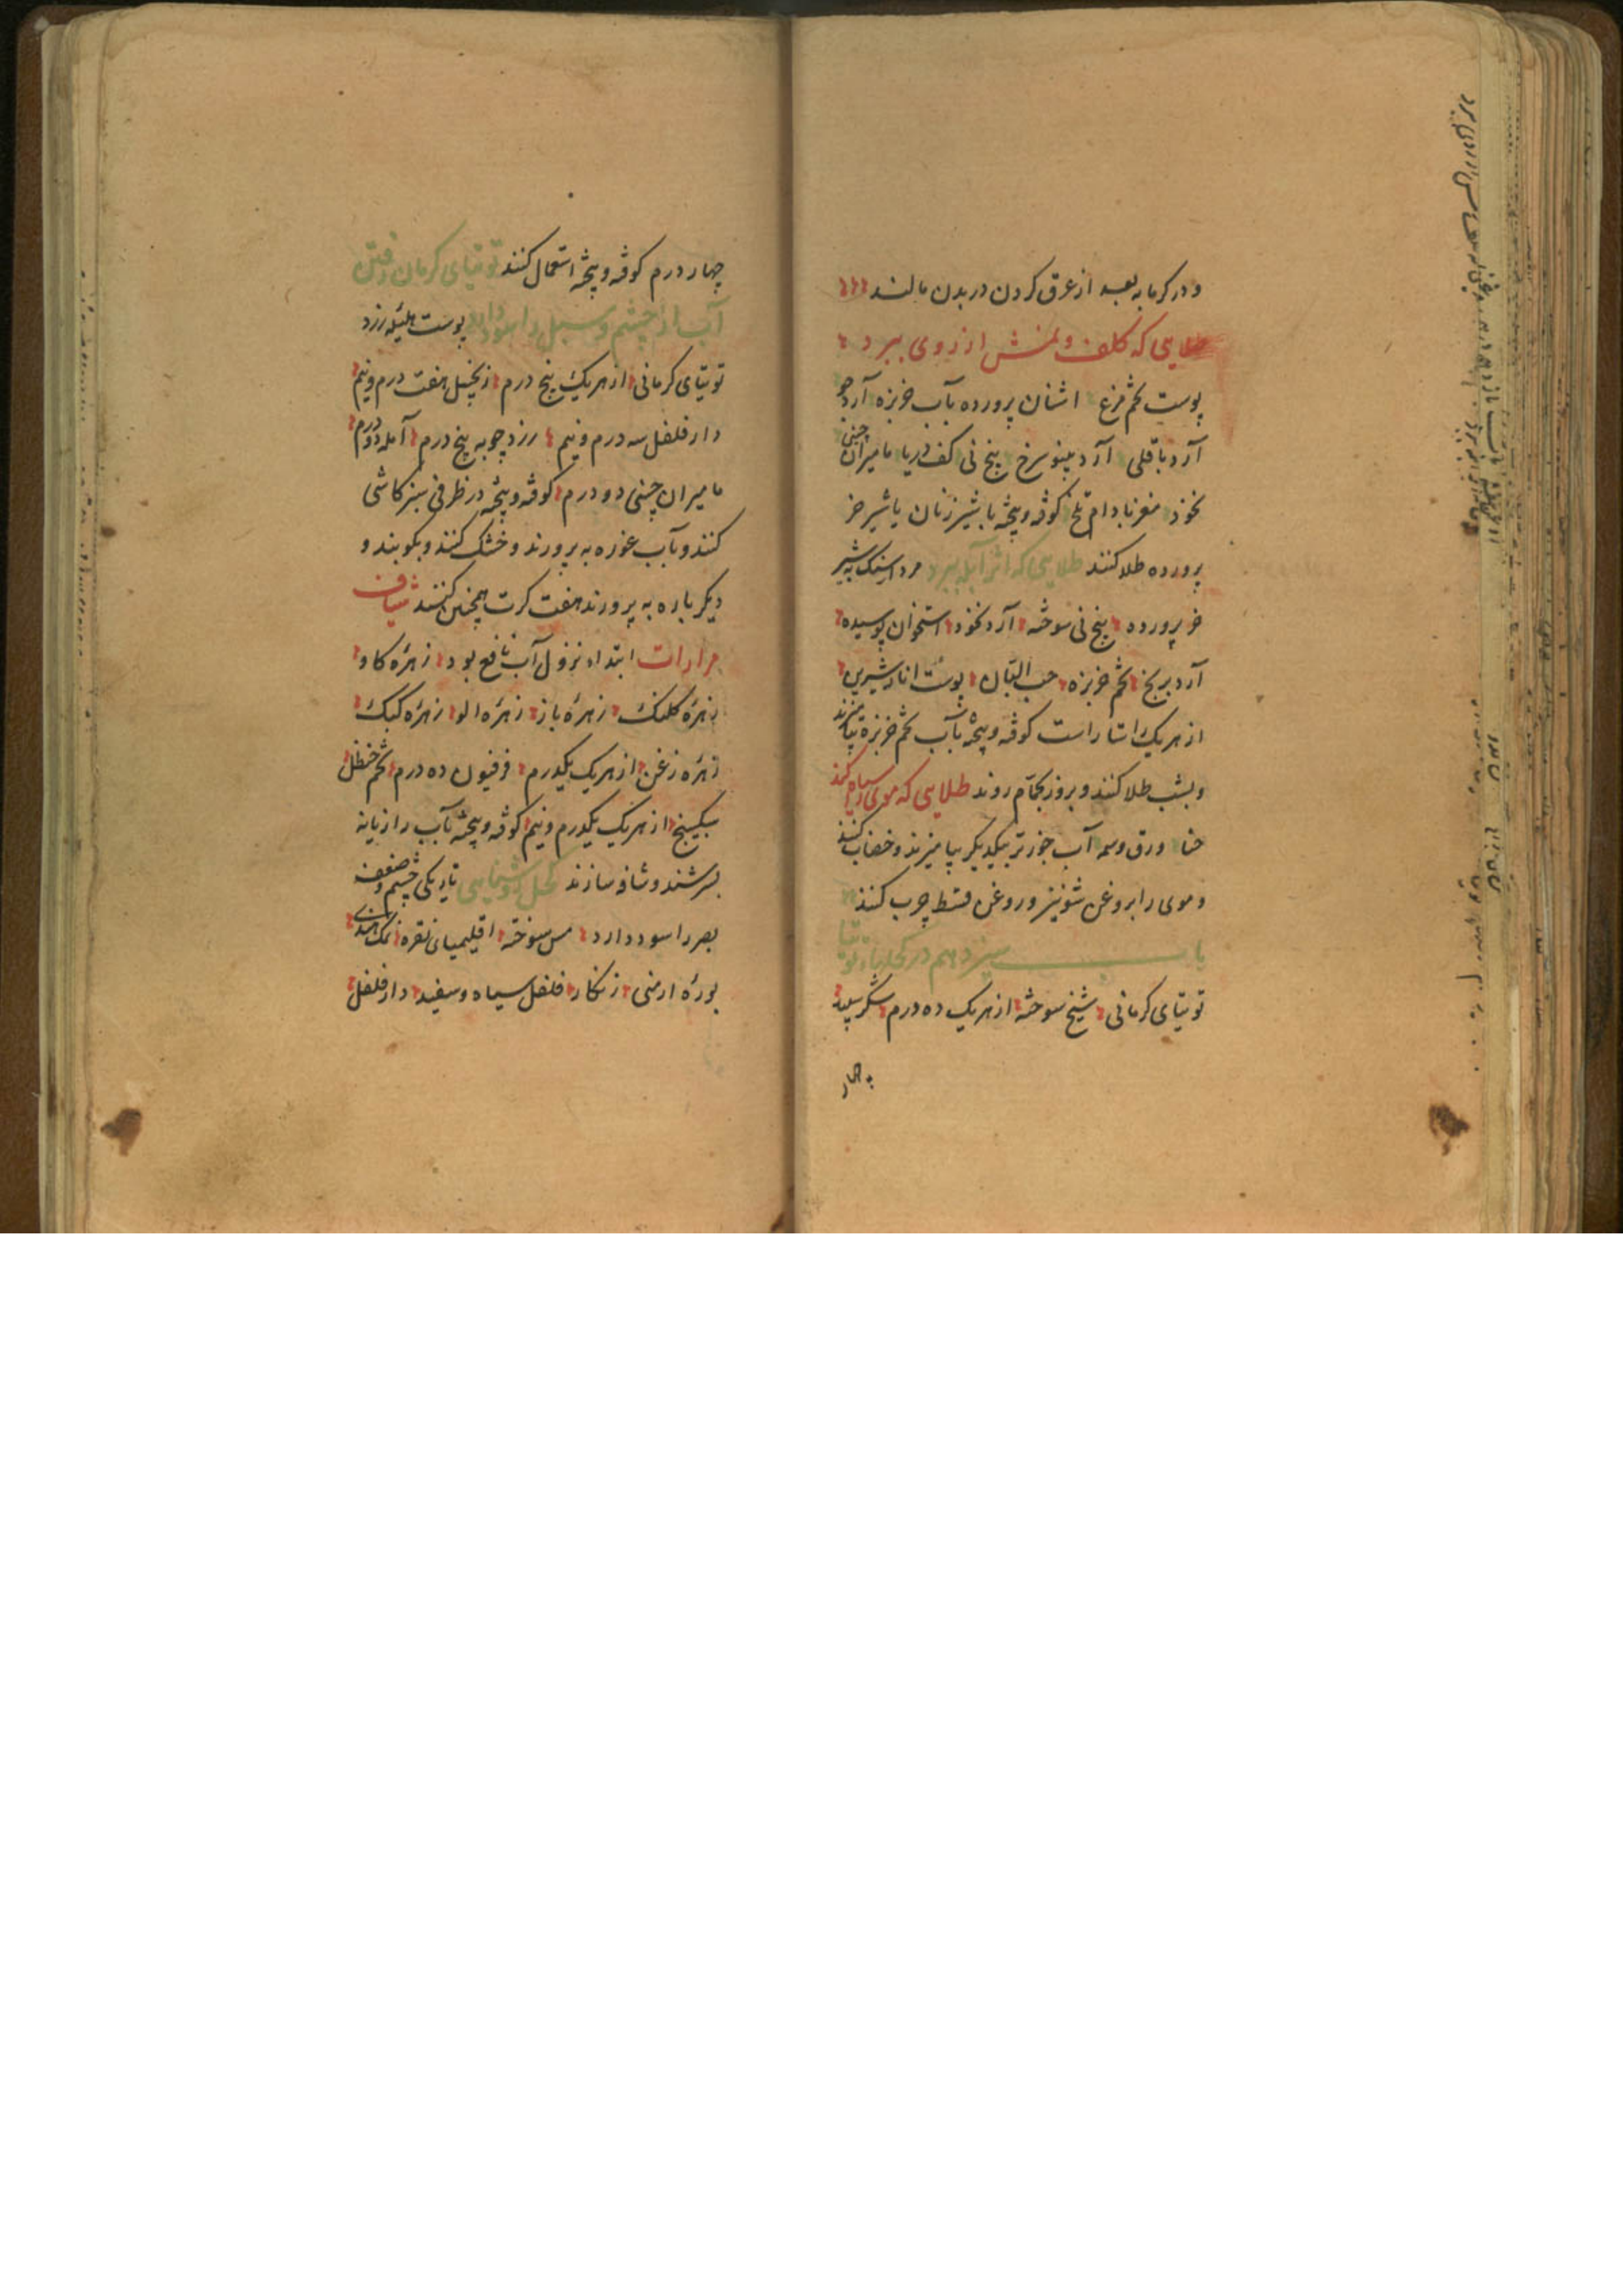 و در کرمابه بعد از عرق کردن در بدن مالند
طلایی که کلف و نمش از روی ببرد
پوست تخم مرغ اشنان پرورده بآب خربزه آرد جو
آرد باقلی آرد مینو سرخ بیخ نی کف دریا مامیران چینی
نخود مغز بادام تلخ کوفته و بیخته با شیر زنان یا شیر خر
پرورده طلا کنند طلایی که اثر آبله ببرد مرداسنک به شیر
خر پرورده بیخ نی سوخته آرد نخود استخوان پوسیده
آرد برنج تخم خربزه حب البان پوست انار شیرین
از هر یک استار است کوفته و بیخته بآب تخم خربزه بیامیزند
و بشب طلا کنند و بروز بحمام روند طلایی که موی سیاه کند
حنا ورق وسمه آب جوز تر بیکدیکر بیامیزند و خضاب کنند
و موی را بروغن شونیز و روغن قسط چرب کنند
باب سیزدهم در کحلها و توتیا
توتیای کرمانی شیخ سوخته از هر یک ده درم شکر سپید
چهار
چهار درم کوفته و بیخته استعمال کنند توتیای کرمان رفتن
آب از چشم و سبل را سود دارد پوست هلیله زرد
توتیای کرمانی از هر یک پنج درم زنجبیل هفت درم و نیم
دار فلفل سه درم و نیم زرد چوبه پنج درم آمله دو درم
مامیران چینی دو درم کوفته و بیخته در ظرفی سبز کاشی
کنند و بآب غوره به پرورند و خشک کنند و بکوبند و
دیکر باره به پرورند هفت کرت همچنین کنند شیاف
مرارات ابتداء نزول آب نافع بود زهرهٔ کاو
زهرهٔ کلنک زهرهٔ باز زهرهٔ الو زهرهٔ کبک
زهرهٔ زغن از هر یک یکدرم فرفیون ده درم تخم حنظل
سکبینج از هر یک یکدرم و نیم کوفته و بیخته بآب رازیانه
بسرشند و شافه سازند کحل روشنایی تاریکی چشم و ضعف
بصر را سود دارد مس سوخته اقلیمیای نقره نمک هندی
بورهٔ ارمنی زنکار فلفل سیاه و سفید دار فلفل